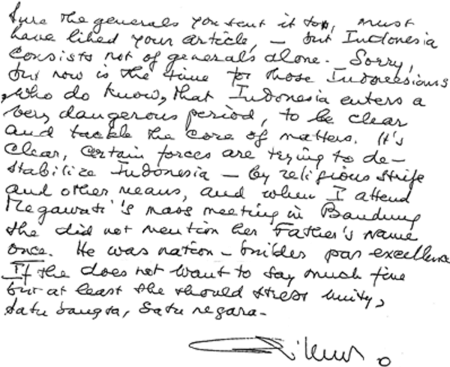 Sure the generals you sent it to, must
have liked your article, – but Indonesia
consists not of generals alone. Sorry,
but now is the time for those Indonesians
who do know, that Indonesia enters a
very dangerous period, to be clear
and tackle the core of matters. It's
clear, certain forces are trying to de-
stabilize Indonesia – by religious strife
and other means, and when I attend
Megawati's mass meeting in Bandung
she did not mention her Father's name
once. He was nation-builder par excellence
If she does not want to say much fine
but at least she should stress unity,
satu bangsa, satu negara-